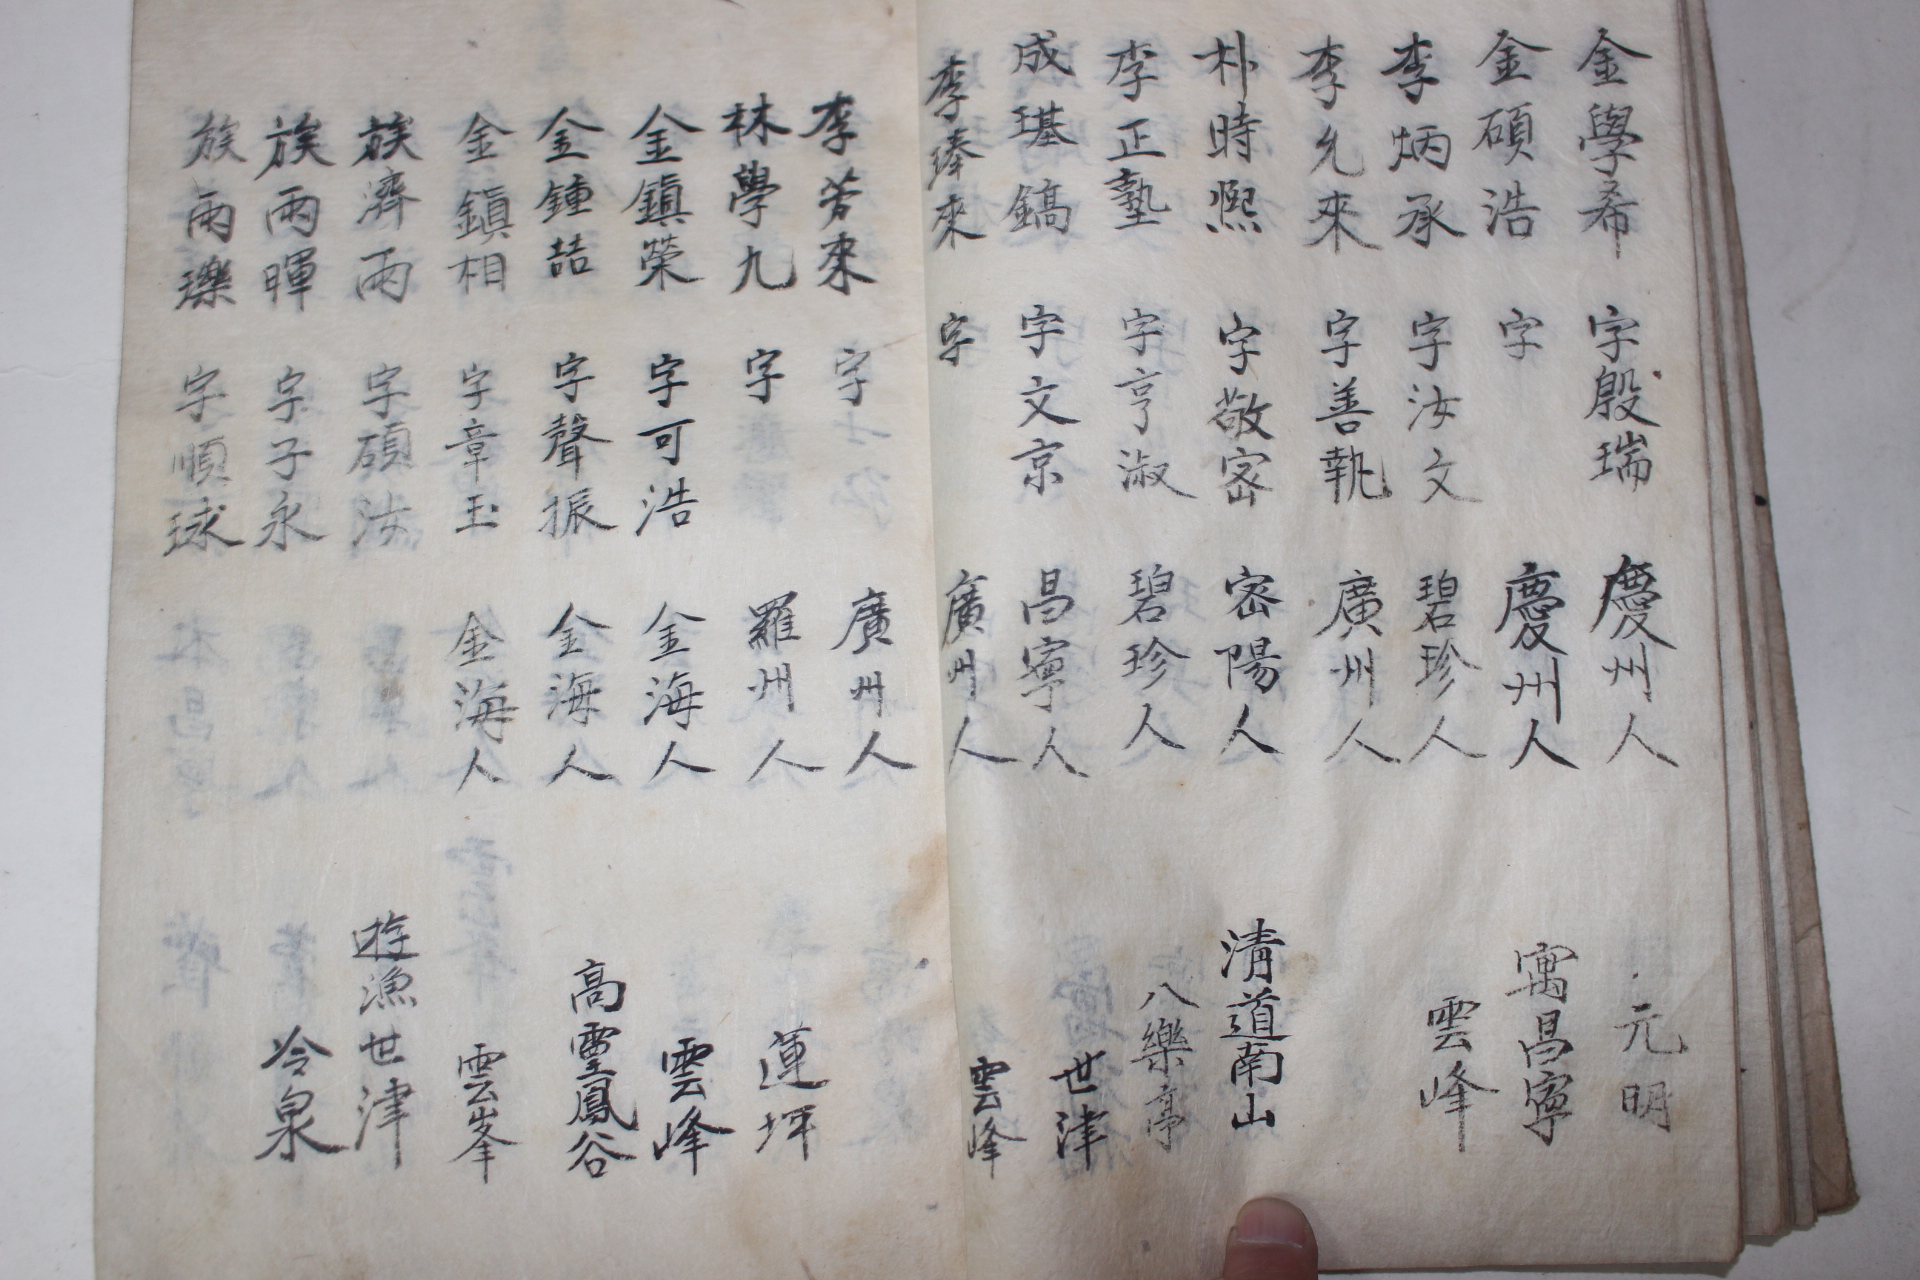 金學希 字殷瑞 慶州人 元明
金碩浩 字 慶州人 寓昌寧
李炳承 字汝文 碧珍人 雲峰
李允來 字善執 廣州人
朴時熙 字敬密 密陽人 清道南山
李正塾 字亨淑 碧珍人 八樂亭
成璂鎬 字文京 昌寧人 世津
李綘來 字 廣州人 雲峰
李芳來 字士弘 廣州人
林學九 字 羅州人 蓮坪
金鎭榮 字可浩 金海人 雲峰
金鍾喆 字聲振 金海人 高靈鳳谷
金鎭相 字章玉 金海人 雲峯
族濟雨 字碩汝 遊漁世津
族雨暉 字子永 冷泉
族雨瓅 字順球